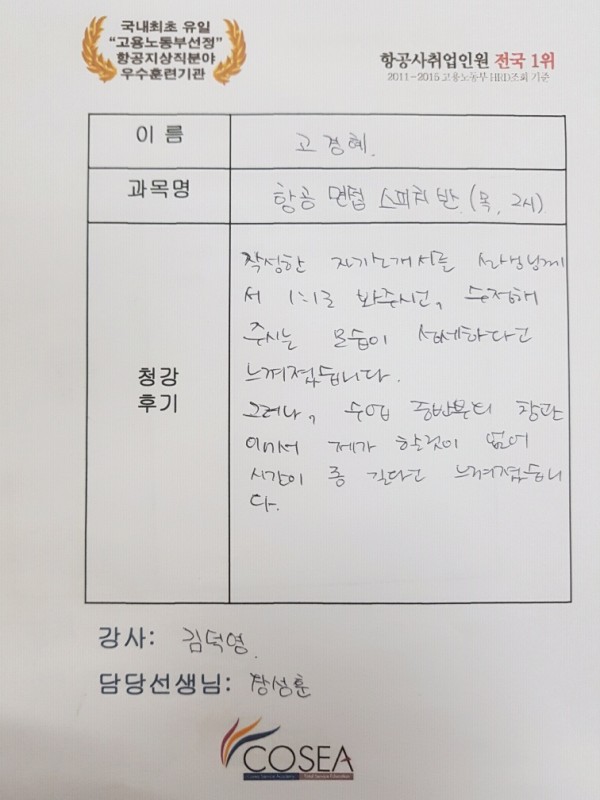 국내최초 유일
"고용노동부선정"
항공지상직분야
우수훈련기관
항공사취업인원 전국 1위
2011~2015 고용노동부 HRD조회 기준
이 름
고경혜.
과목명
항공 면접 스피치 반. (목, 2시)
청강
후기
작성한 자기소개서를 선생님께
서 1:1로 봐주시고, 수정해
주시는 모습이 섬세하다고
느껴졌습니다.
그러나, 수업 중반부터 참관
이어서 제가 할것이 없어
시간이 좀 길다고 느껴졌습니
다.
강사: 김덕영.
담당선생님: 장성훈
COSEA